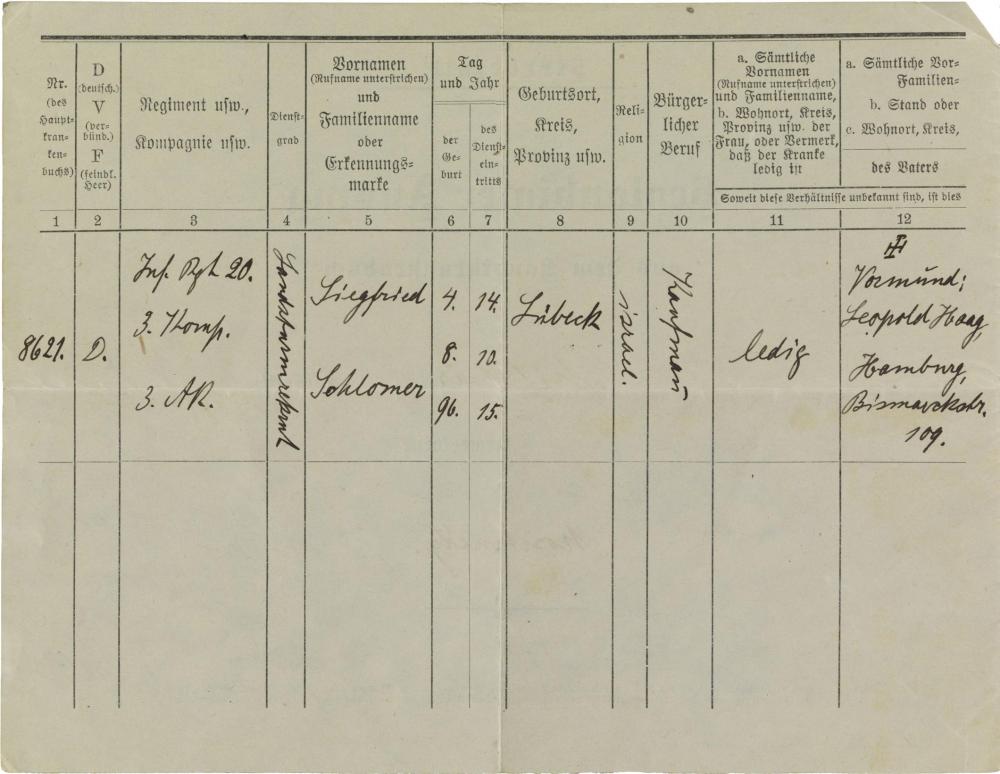 Nr.
(des
Haupt-
kran-
ken-
buchs)
D
(deutsch.)
V
(ver-
bünd.)
F
(feindl.
Heer)
Regiment usw.,
Kompagnie usw.
Dienst-
grad
Vornamen
(Rufname unterstrichen)
und
Familienname
oder
Erkennungs-
marke
Tag
und Jahr
der
Ge-
burt
des
Dienst-
ein-
tritts
Geburtsort,
Kreis,
Provinz usw.
Reli-
gion
Bürger-
licher
Beruf
a. Sämtliche
Vornamen
(Rufname unterstrichen)
und Familienname,
b. Wohnort, Kreis,
Provinz usw. der
Frau, oder Vermerk,
daß der Kranke
ledig ist
a. Sämtliche Vor-
Familien-
b. Stand oder
c. Wohnort, Kreis,
des Vaters
Soweit diese Verhältnisse unbekannt sind, ist dies
1 2 3 4 5 6 7 8 9 10 11 12
8621.
D.
Inf. Rgt. 20.
3. Komp.
3. AK.
Siegfried
Schlomer
4.
8.
96.
14.
10.
15.
Lübeck
israel.
Kaufmann
ledig
Vormund:
Leopold Haag,
Hamburg,
Bismarckstr.
109.